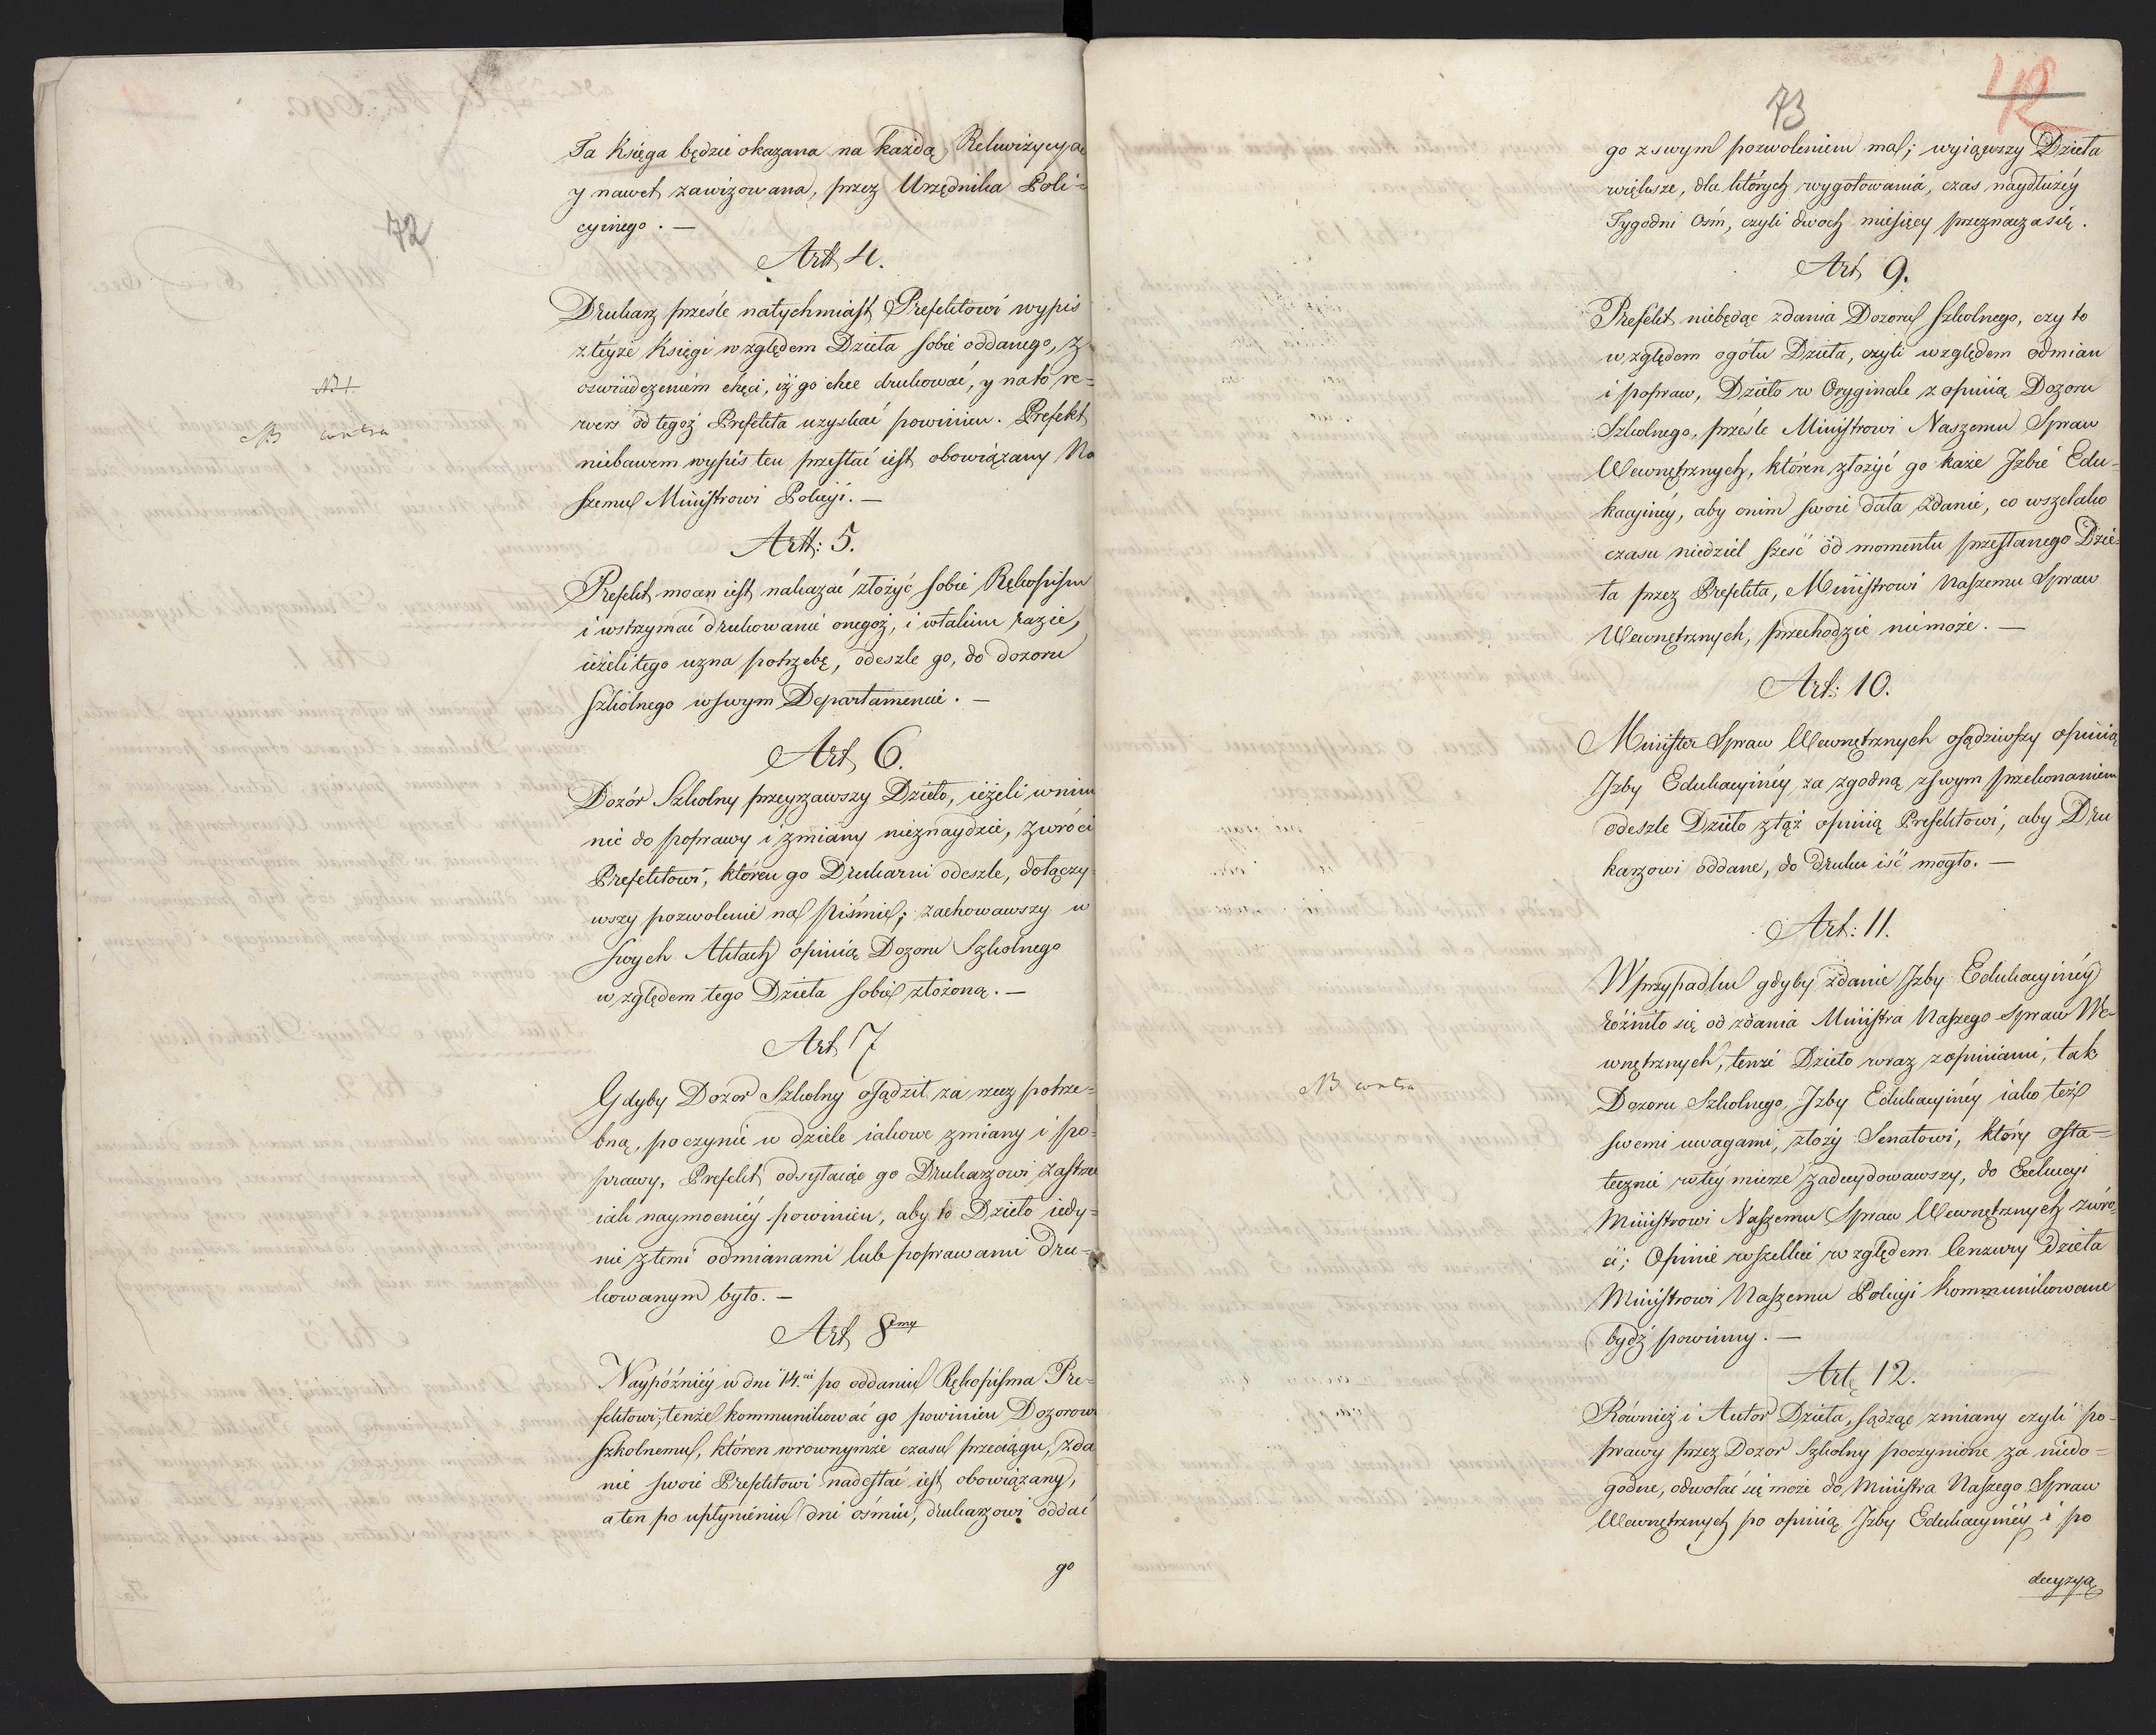 72
Ta Księga będzie okazana na każdą Rekwizycyą
y nawet zawizowana, przez Urzędnika Poli-
cyinego. —
Artt 4.
Drukarz prześle natychmiast Prefektowi wypis
z teyże Księgi względem Dzieła sobie oddanego, z
oświadczeniem chęci, iż go chce drukować, y na to re-
wers od tegoż Prefekta uzyskać powinien. Prefekt
niebawem wypis ten przesłać iest obowiązany Na
szemu Ministrowi Policyi. —
NB contra
Artt: 5.
Prefekt mocen iest nakazać złożyć sobie Rękopism
i wstrzymać drukowanie onegoż, i w takim razie,
ieżeli tego uzna potrzebę, odeszle go, do dozoru
szkolnego w swym Departamencie. —
Art 6.
Dozór Szkolny przeyrzawszy Dzieło, ieżeli w nim
nic do poprawy i zmiany nieznaydzie, zwróci
Prefektowi, któren go Drukarni odeszle, dołączy
wszy pozwolenie na piśmie; zachowawszy w
swych Aktach opinią Dozoru Szkolnego
względem tego Dzieła sobie złożoną. —
Art 7
Gdyby Dozor Szkolny osądził za rzecz potrze-
bną, poczynić w dziele iakowe zmiany i po-
prawy, Prefekt odsyłaiąc go Drukarzowi zastrze
iak naymocniéy powinien, aby to Dzieło iedy-
nie z temi odmianami lub poprawami dru-
kowanym było. —
Art 8my
Naypóźniéy w dni 14.ai po oddaniu Rękopisma Pre-
fektowi, tenże kommunikować go powinien Dozorowi
szkolnemu, któren w rownymże czasu przeciągu, zda
nie swoie Prefektowi nadesłać iest obowiązany,
a ten po upłynieniu dni ośmiu, drukarzowi oddać
go
73
42
go z swym pozwoleniem ma; wyiąwszy Dzieła
większe, dla których wygotowania, czas naydłużéy
Tygodni Ośm, czyli dwoch miesięcy przeznacza się.
Art 9.
Prefekt niebędąc zdania Dozoru Szkolnego, czy to
względem ogółu Dzieła, czyli względem odmian
i popraw, Dzieło w Oryginale z opinią Dozoru
Szkolnego, prześle Ministrowi Naszemu Spraw
Wewnętrznych, któren złożyć go każe Izbie Edu-
kacyinéy, aby o nim swoie dała zdanie, co wszelako
czasu niedziel sześć od momentu przesłanego Dzie-
ła przez Prefekta, Ministrowi Naszemu Spraw
Wewnętrznych, przechodzić niemoże. —
Art: 10.
Minister Spraw Wewnętrznych osądziwszy opinią
Izby Edukacyinéy za zgodną z swym przekonaniem
odeszle Dzieło z tąż opinią Prefektowi, aby Dru
karzowi oddane, do druku iść mogło. —
Art: 11.
W przypadku gdyby zdanie Izby Edukacyinéy
różniło się od zdania Ministra Naszego Spraw We-
wnętrznych, tenże Dzieło wraz z opiniami, tak
Dozoru Szkolnego, Izby Edukacyinéy iako też
swemi uwagami, złoży Senatowi, który osta-
tecznie w téy mierze zadecydowawszy, do Exekucyi
Ministrowi Naszemu Spraw Wewnętrznych zwró-
ci; Opinie wszelkie względem Cenzury Dzieła
Ministrowi Naszemu Policyi kommunikowane
bydź powinny. —
NB contra
Art 12.
Również i Autor Dzieła, sądząc zmiany czyli po-
prawy przez Dozor Szkolny poczynione za niedo-
godne, odwołać się może do Ministra Naszego Spraw
Wewnętrznych po opinią Izby Edukacyinéy i po
decyzyą